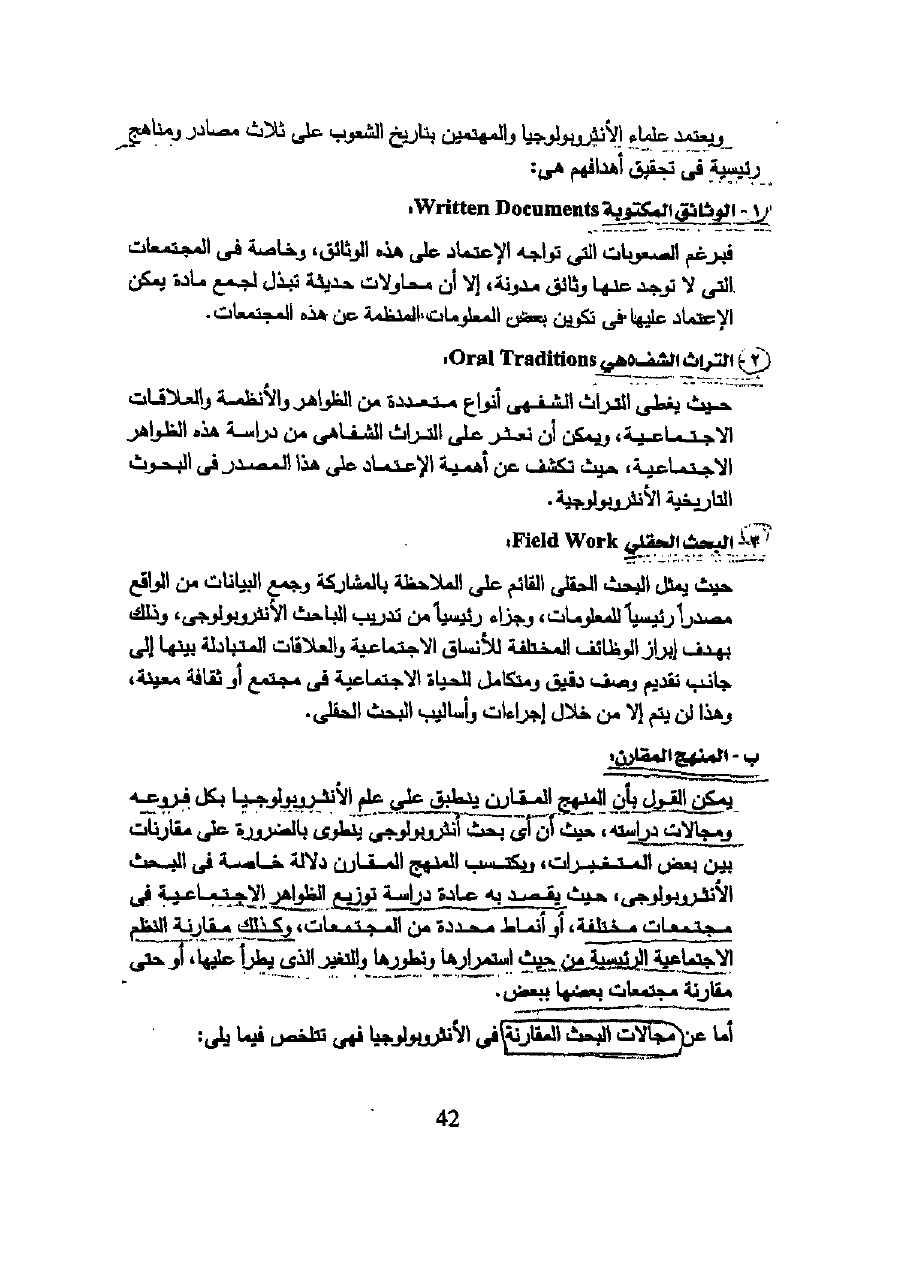 ويعتمد علماء الأنثروبولوجيا والمهتمين بتاريخ الشعوب على ثلاث مصادر ومناهج
رئيسية فى تحقيق أهدافهم هى:
١- الوثائق المكتوبة Written Documents:
فبرغم الصعوبات التى تواجه الإعتماد على هذه الوثائق، وخاصة فى المجتمعات
التى لا توجد عنها وثائق مدونة، إلا أن محاولات حديثة تبذل لجمع مادة يمكن
الإعتماد عليها فى تكوين بعض المعلومات المنظمة عن هذه المجتمعات.
٢- التراث الشفاهي Oral Traditions:
حيث يغطى التراث الشفهى أنواع متعددة من الظواهر والأنظمة والعلاقات
الاجتماعية، ويمكن أن نعثر على التراث الشفاهى من دراسة هذه الظواهر
الاجتماعية، حيث تكشف عن أهمية الإعتماد على هذا المصدر فى البحوث
التاريخية الأنثروبولوجية.
٣- البحث الحقلي Field Work:
حيث يمثل البحث الحقلى القائم على الملاحظة بالمشاركة وجمع البيانات من الواقع
مصدراً رئيسياً للمعلومات، وجزاء رئيسياً من تدريب الباحث الأنثروبولوجى، وذلك
بهدف إبراز الوظائف المختلفة للأنساق الاجتماعية والعلاقات المتبادلة بينها إلى
جانب تقديم وصف دقيق ومتكامل للحياة الاجتماعية فى مجتمع أو ثقافة معينة،
وهذا لن يتم إلا من خلال إجراءات وأساليب البحث الحقلى.
ب- المنهج المقارن:
يمكن القول بأن المنهج المقارن ينطبق على علم الأنثروبولوجيا بكل فروعه
ومجالات دراسته، حيث أن أى بحث أنثروبولوجي ينطوى بالضرورة على مقارنات
بين بعض المتغيرات، ويكتسب المنهج المقارن دلالة خاصة فى البحث
الأنثروبولوجى، حيث يقصد به عادة دراسة توزيع الظواهر الاجتماعية فى
مجتمعات مختلفة، أو أنماط محددة من المجتمعات، وكذلك مقارنة النظم
الاجتماعية الرئيسية من حيث استمرارها وتطورها والتغير الذى يطرأ عليها، أو حتى
مقارنة مجتمعات بعضها ببعض.
أما عن مجالات البحث المقارنة فى الأنثروبولوجيا فهى تتلخص فيما يلى:
42